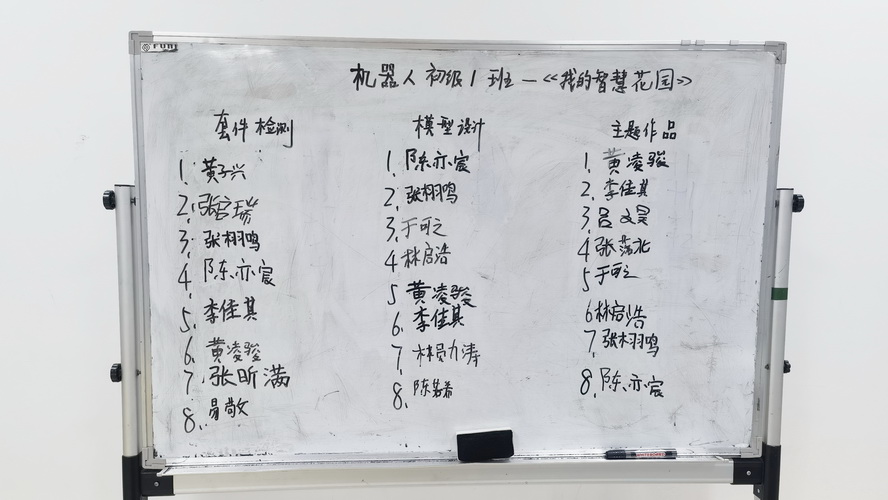 机器人初级1班—《我的智慧花园》
套件检测
1. 黄子兴
2. 张启瑞
3. 张栩鸣
4. 陈亦宸
5. 李佳其
6. 黄凌骏
7. 张昕满
8. 易敬文
模型设计
1. 陈亦宸
2. 张栩鸣
3. 于可之
4 林启浩
5 黄凌骏
6. 李佳其
7. 林勋涛
8. 陈若希
主题作品
1. 黄凌骏
2. 李佳其
3. 吕文昊
4. 张荡北
5 于可之
6 林启浩
7. 张栩鸣
8. 陈亦宸